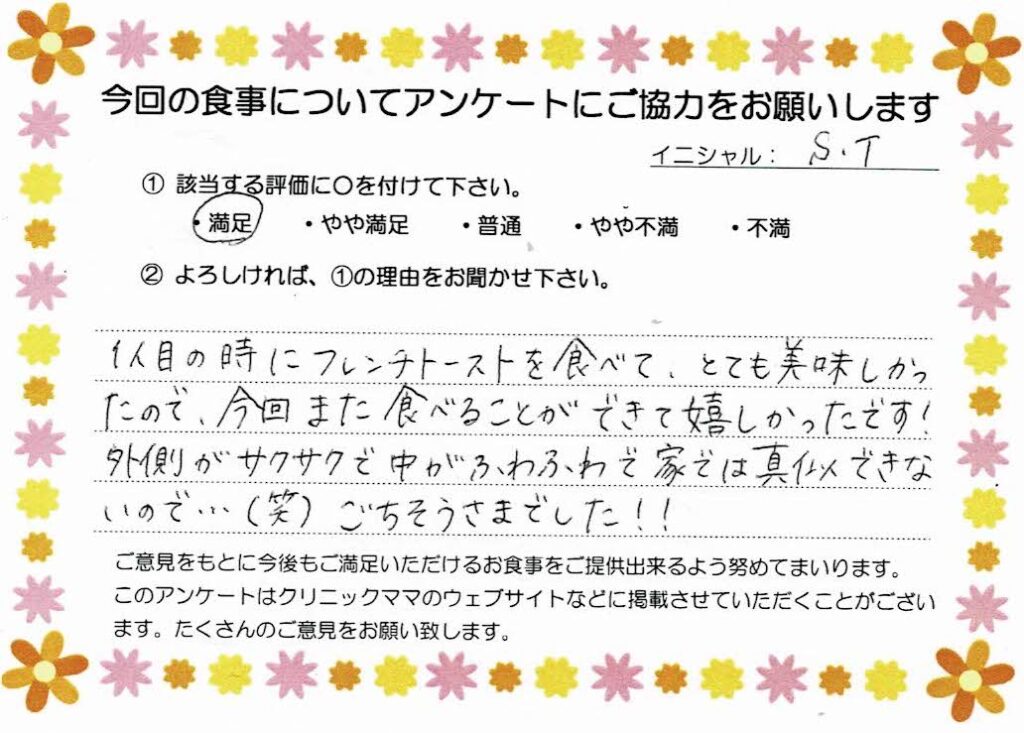 今回の食事についてアンケートにご協力をお願いします
イニシャル： S.T
① 該当する評価に〇を付けて下さい。
・満足 ・やや満足 ・普通 ・やや不満 ・不満
② よろしければ、①の理由をお聞かせ下さい。
1人目の時にフレンチトーストを食べて、とても美味しかっ
たので、今回また食べることができて嬉しかったです!
外側がサクサクで中がふわふわで家では真似できな
いので…(笑)ごちそうさまでした!!
ご意見をもとに今後もご満足いただけるお食事をご提供出来るよう努めてまいります。
このアンケートはクリニックママのウェブサイトなどに掲載させていただくことがござい
ます。たくさんのご意見をお願い致します。